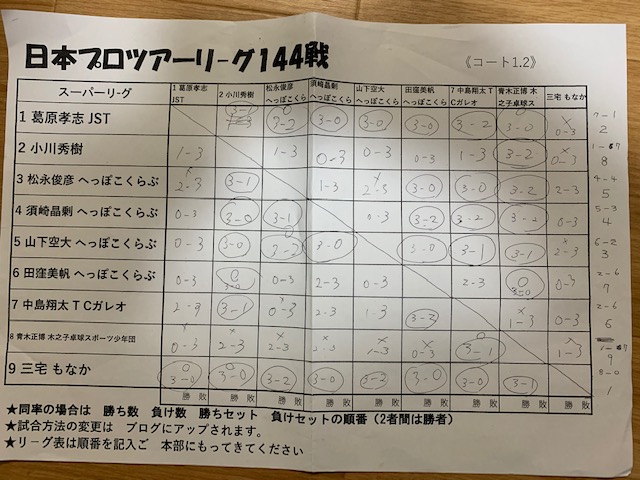 日本プロツアーリーグ144戦 《コート1.2》
スーパーリーグ 1 葛原孝志 JST 2 小川秀樹 松永俊彦 へっぽこくら 須崎晶剰 へっぽこくら 山下空大 へっぽこくら 田窪美帆 へっぽこくら 7 中島翔太 T Cガレオ 青木正博 木之子卓球ス 三宅 もなか
1 葛原孝志 JST 3-2 3-0 3-0 3-0 3-2 3-0 0-3 7-1 2
2 小川秀樹 1-3 1-3 0-3 0-3 0-3 1-3 3-2 0-3 8
3 松永俊彦 へっぽこくらぶ 2-3 3-1 1-3 2-3 3-0 3-0 3-2 2-3 4-4 5
4 須崎晶剰 へっぽこくらぶ 0-3 3-0 3-1 0-3 3-2 3-2 3-2 0-3 5-3 4
5 山下空大 へっぽこくらぶ 0-3 3-0 3-2 3-0 3-0 3-1 3-1 2-3 6-2 3
6 田窪美帆 へっぽこくらぶ 0-3 3-0 0-3 2-3 0-3 2-3 3-0 0-3 2-6 7
7 中島翔太 T Cガレオ 3-1 0-3 2-3 1-3 3-2 1-3 0-3 2-6 6
8 青木正博 木之子卓球スポーツ少年団 0-3 2-3 2-3 2-3 1-3 0-3 3-1 1-3 9
9 三宅 もなか 3-0 3-0 3-2 3-0 3-2 3-0 3-0 3-1 8-0 1
勝 敗 勝 敗 勝 敗 勝 敗 勝 敗 勝 敗 勝 敗 勝 敗 勝 敗
★同率の場合は 勝ち数 負け数 勝ちセット 負けセットの順番 (2者間は勝者)
★試合方法の変更は ブログにアップされます。
★リーグ表は順番を記入ご 本部にもってきてください